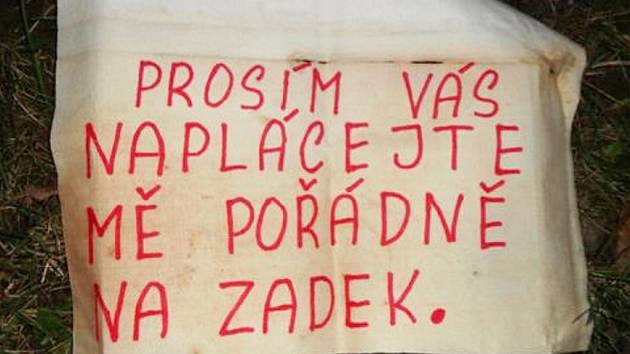 PROSÍM VÁS
NAPLÁCEJTE
MĚ POŘÁDNĚ
NA ZADEK.